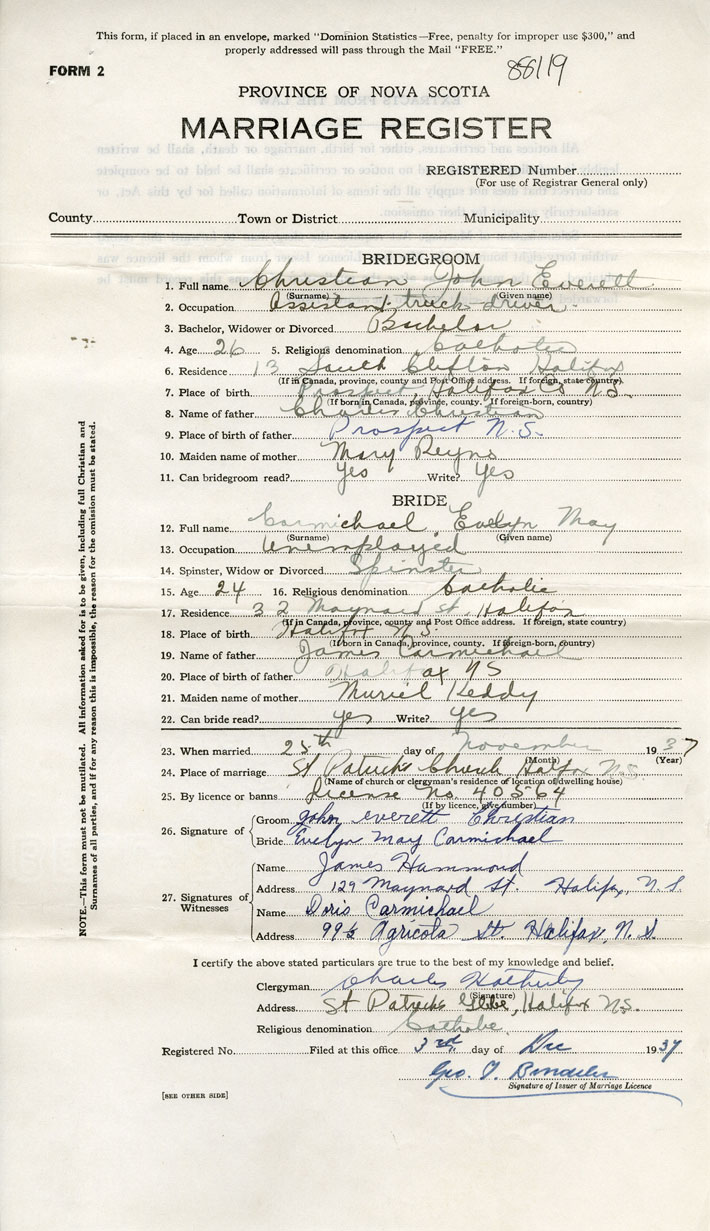 This form, if placed in an envelope, marked "Dominion Statistics—Free, penalty for improper use $300," and
properly addressed will pass through the Mail "FREE."
FORM 2
88119
PROVINCE OF NOVA SCOTIA
MARRIAGE REGISTER
REGISTERED Number
(For use of Registrar General only)
County Town or District Municipality
BRIDEGROOM
1. Full name Christian John Everett
(Surname) (Given name)
2. Occupation Assistant truck driver
3. Bachelor, Widower or Divorced Bachelor
4. Age 26 5. Religious denomination Catholic
6. Residence 13 South Clifton Halifax
(If in Canada, province, county and Post Office address. If foreign, state country)
7. Place of birth Prospect Halifax Co N.S.
(If born in Canada, province, county. If foreign-born, country)
8. Name of father Charles Christian
9. Place of birth of father Prospect N.S.
10. Maiden name of mother Mary Reyno
11. Can bridegroom read? Yes Write? Yes
BRIDE
12. Full name Carmichael, Evelyn May
(Surname) (Given name)
13. Occupation Unemployed
14. Spinster, Widow or Divorced Spinster
15. Age 24 16. Religious denomination Catholic
17. Residence 32 Maynard st. Halifax
(If in Canada, province, county and Post Office address. If foreign, state country)
18. Place of birth Halifax N.S.
(If born in Canada, province, county. If foreign-born, country)
19. Name of father James Carmichael
20. Place of birth of father Halifax NS
21. Maiden name of mother Muriel Keddy
22. Can bride read? yes Write? yes
23. When married 25th day of November 1937
(Month) (Year)
24. Place of marriage St Patricks Church Halifax N.S.
(Name of church or clergyman's residence of location of dwelling house)
25. By licence or banns License No. 40564
(If by licence, give number)
26. Signature of
Groom John everett Christian
Bride Evelyn May Carmichael
27. Signatures of Witnesses
Name James Hammond
Address 129 Maynard St. Halifax, N.S
Name Doris Carmichael
Address 99½ Agricola St. Halifax, N.S.
I certify the above stated particulars are true to the best of my knowledge and belief.
Clergyman Charles
(Signature)
Address St Patricks Glebe, Halifax N.S.
Religious denomination Catholic
Registered No. Filed at this office 3rd day of Dec 1937
Geo. T.
Signature of Issuer of Marriage Licence
[SEE OTHER SIDE]
NOTE.—This form must not be mutilated. All information asked for is to be given, including full Christian and
Surnames of all parties, and if for any reason this is impossible, the reason for the omission must be stated.